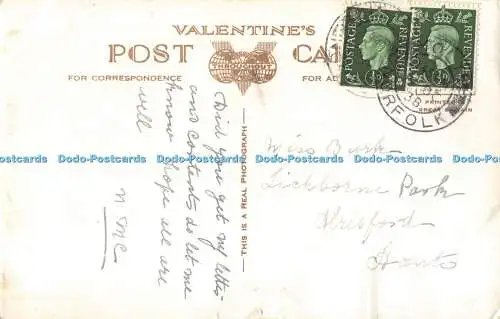 VALENTINE'S
POST CA
FOR CORRESPONDENCE
FOR AD
THIS IS A REAL PHOTOGRAPH
POSTAGE REVENUE
POSTAGE REVENUE
NORFOLK
38
PRINTED IN
GREAT BRITAIN
Did you get my letter
and contents do let me
know hope all are
well
N Mc
Miss Burk
Tichborne Park
Alresford
Hants
Dodo-Postcards Dodo-Postcards Dodo-Postcards Dodo-Postcards Dodo-Postcards